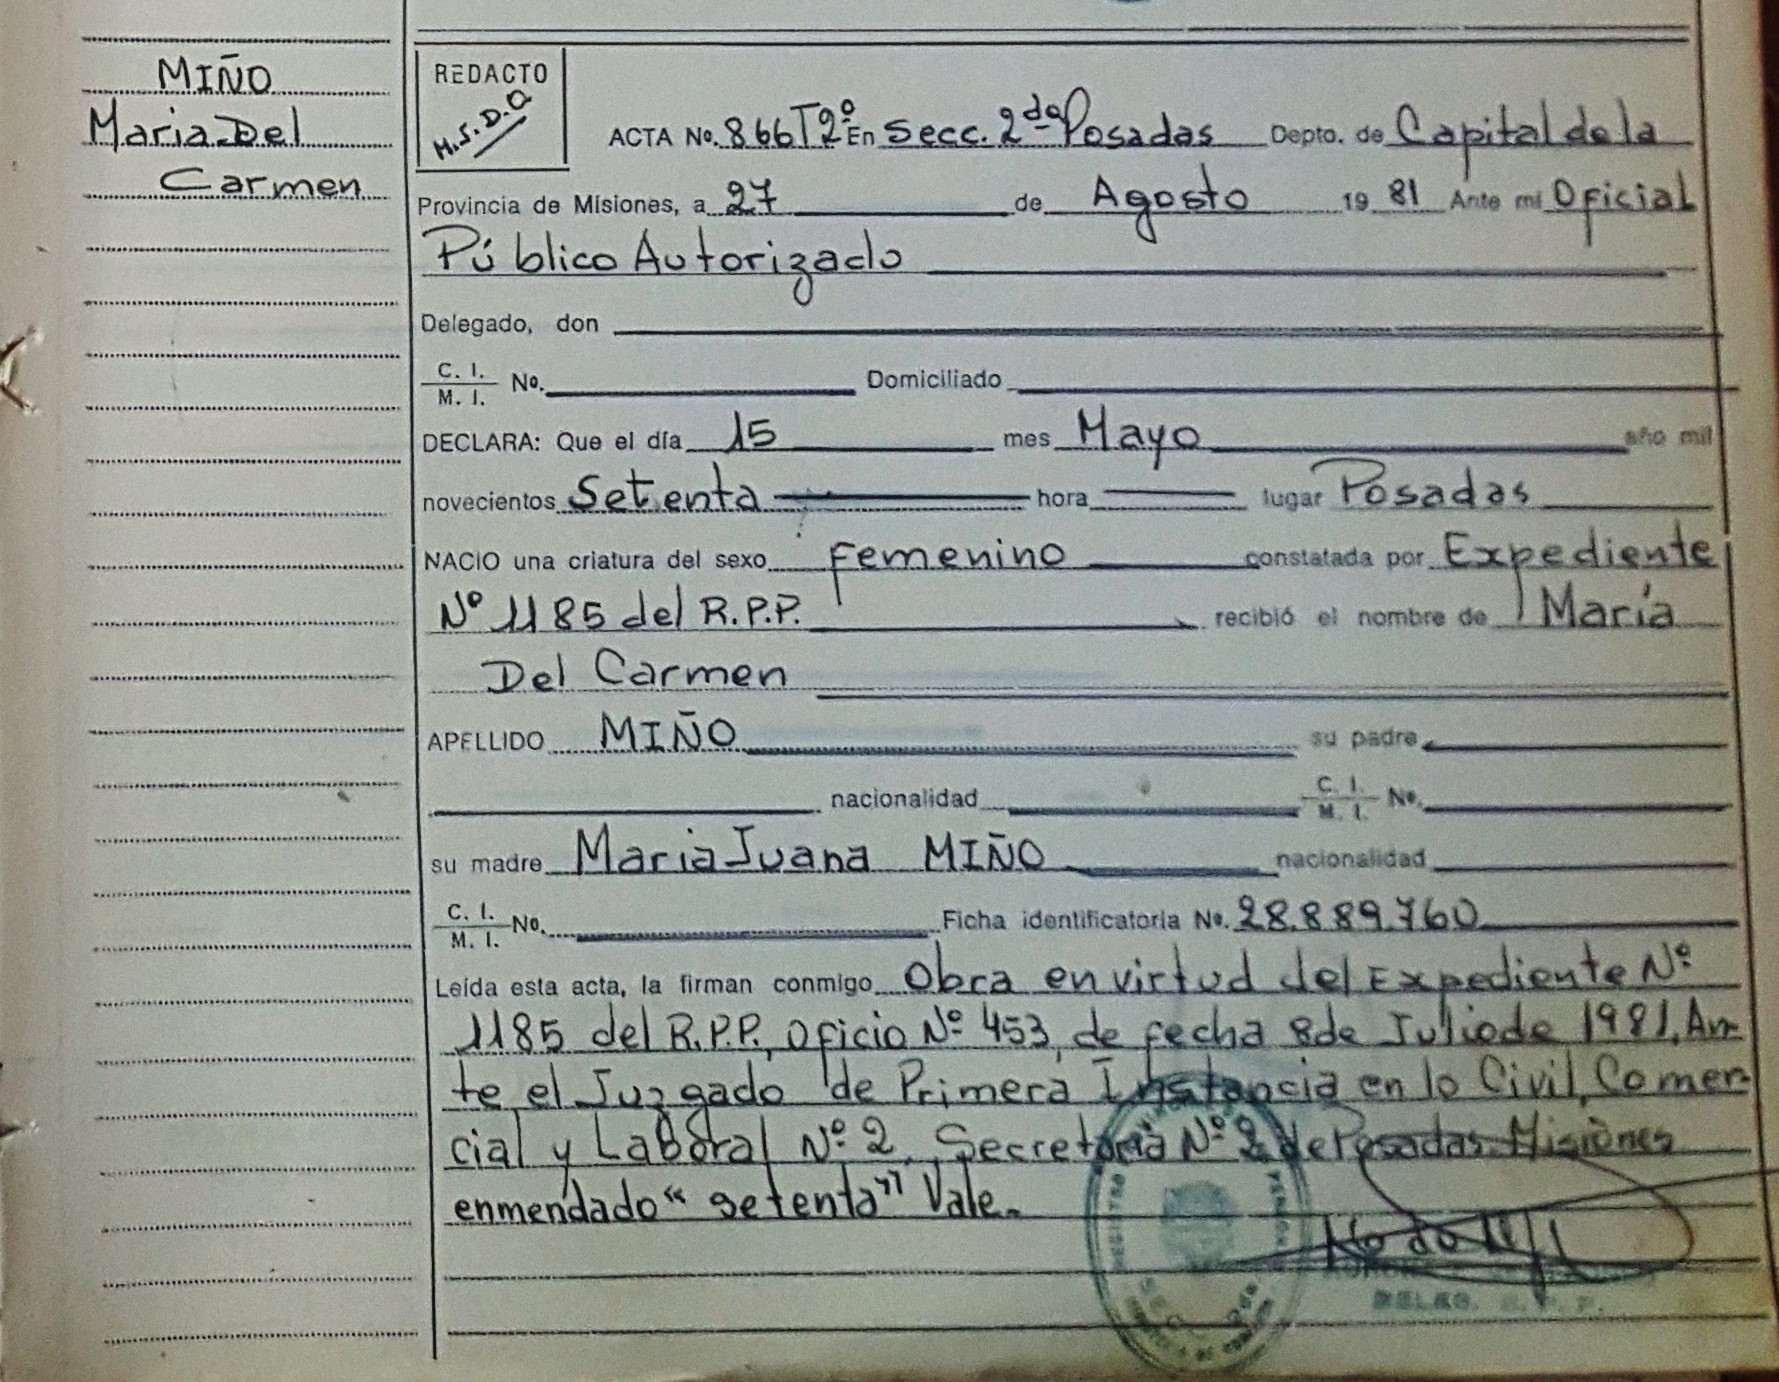 MIÑO
Maria Del
Carmen
REDACTO
M.S.D.O
ACTA No. 866 T2º En Secc. 2da Posadas Depto. de Capital de la
Provincia de Misiones, a 27 de Agosto 19 81 Ante mi Oficial
Público Autorizado
Delegado, don
C. I. / M. I. No. Domiciliado
DECLARA: Que el día 15 mes Mayo año mil
novecientos Setenta hora lugar Posadas
NACIO una criatura del sexo Femenino constatada por Expediente
Nº 1185 del R.P.P. recibió el nombre de María
Del Carmen
APELLIDO MIÑO su padre
nacionalidad C. I. / M. I. No.
su madre Maria Juana MIÑO nacionalidad
C. I. / M. I. No. Ficha identificatoria No. 28.889.760
Leída esta acta, la firman conmigo Obra en virtud del Expediente Nº
1185 del R.P.P., Oficio Nº 453, de fecha 8 de Julio de 1981, An-
te el Juzgado de Primera Instancia en lo Civil, Comer-
cial y Laboral Nº 2, Secretaria Nº 2 de Posadas Misiones
enmendado "setenta" Vale.
DELEG. R. P. P.